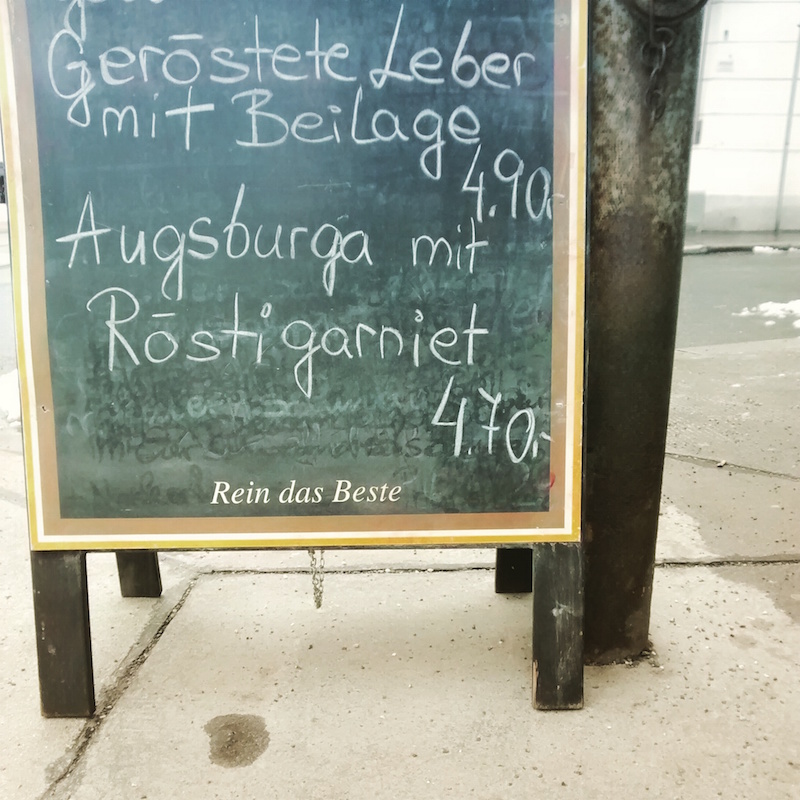 Geröstete Leber
mit Beilage
4.90.-
Augsburga mit
Rösti garniet
4.70.-
Rein das Beste